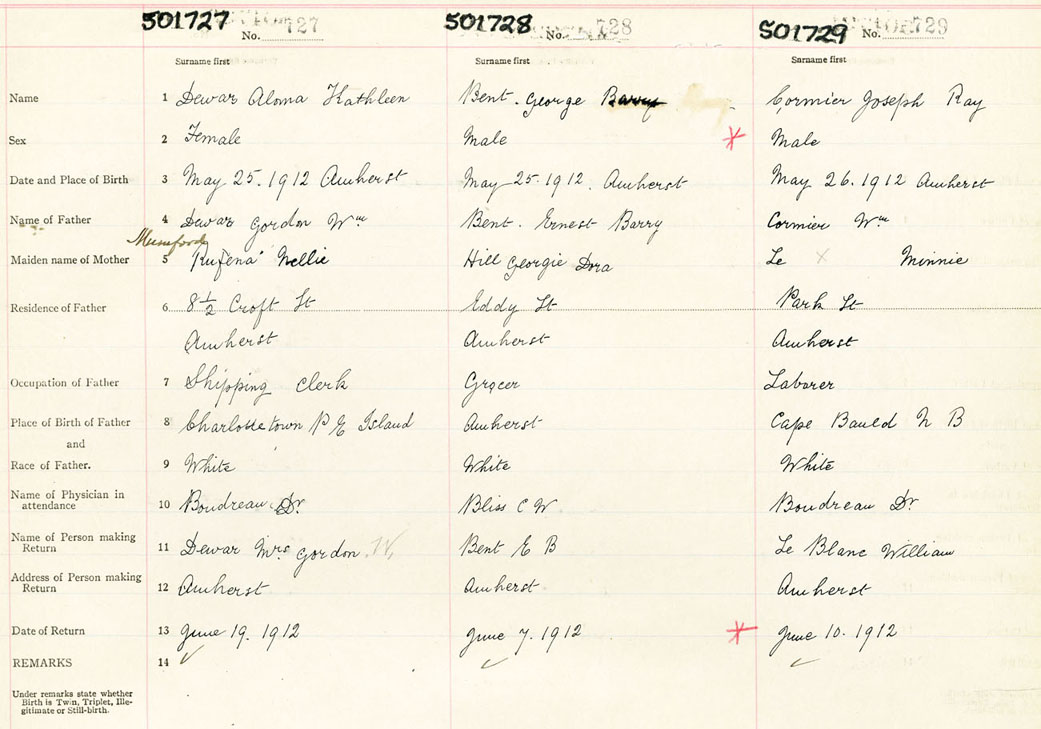 501727 No. 727 501728 No. 728 501729 No. 729
Surname first Surname first Surname first
Name 1 Dewar Aloma Kathleen Bent. George Barry Cormier Joseph Ray
Sex 2 Female Male Male
Date and Place of Birth 3 May 25. 1912 Amherst May 25. 1912. Amherst May 26. 1912 Amherst
Name of Father 4 Dewar Gordon Wm Bent. Ernest Barry Cormier Wm
Mumford
Maiden name of Mother 5 "Rufena" Nellie Hill Georgie Dora Le x Minnie
Residence of Father 6 8 1/2 Croft St Eddy St Park St
Amherst Amherst Amherst
Occupation of Father 7 Shipping Clerk Grocer Laborer
Place of Birth of Father 8 Charlottetown P E Island Amherst Cape Bauld N B
and
Race of Father. 9 White White White
Name of Physician in
attendance 10 Boudreau Dr. Bliss C W. Boudreau Dr.
Name of Person making
Return 11 Dewar Mrs Gordon. W. Bent E B Le Blanc William
Address of Person making
Return 12 Amherst Amherst Amherst
Date of Return 13 June 19. 1912 June 7. 1912 June 10. 1912
REMARKS 14
Under remarks state whether
Birth is Twin, Triplet, Ille-
gitimate or Still-birth.